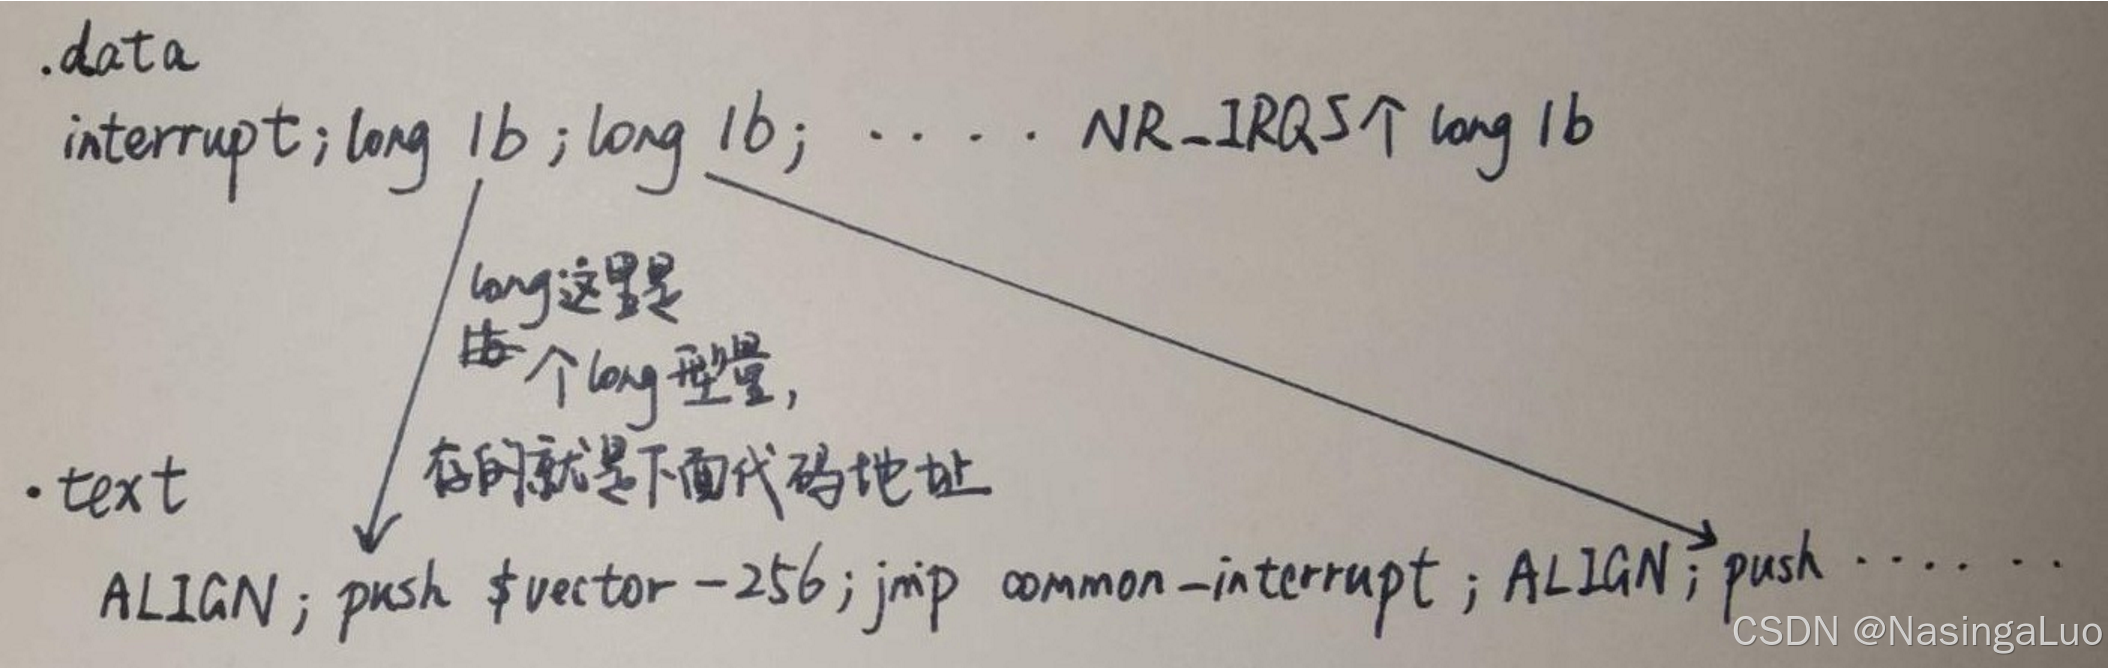 .data
interrupt; long 1b; long 1b; ···· NR_IRQS个 long 1b
long这里是
个long型量,
存的就是下面代码地址
.text
ALIGN; push $vector-256; jmp common-interrupt; ALIGN; push ······
CSDN @NasingaLuo